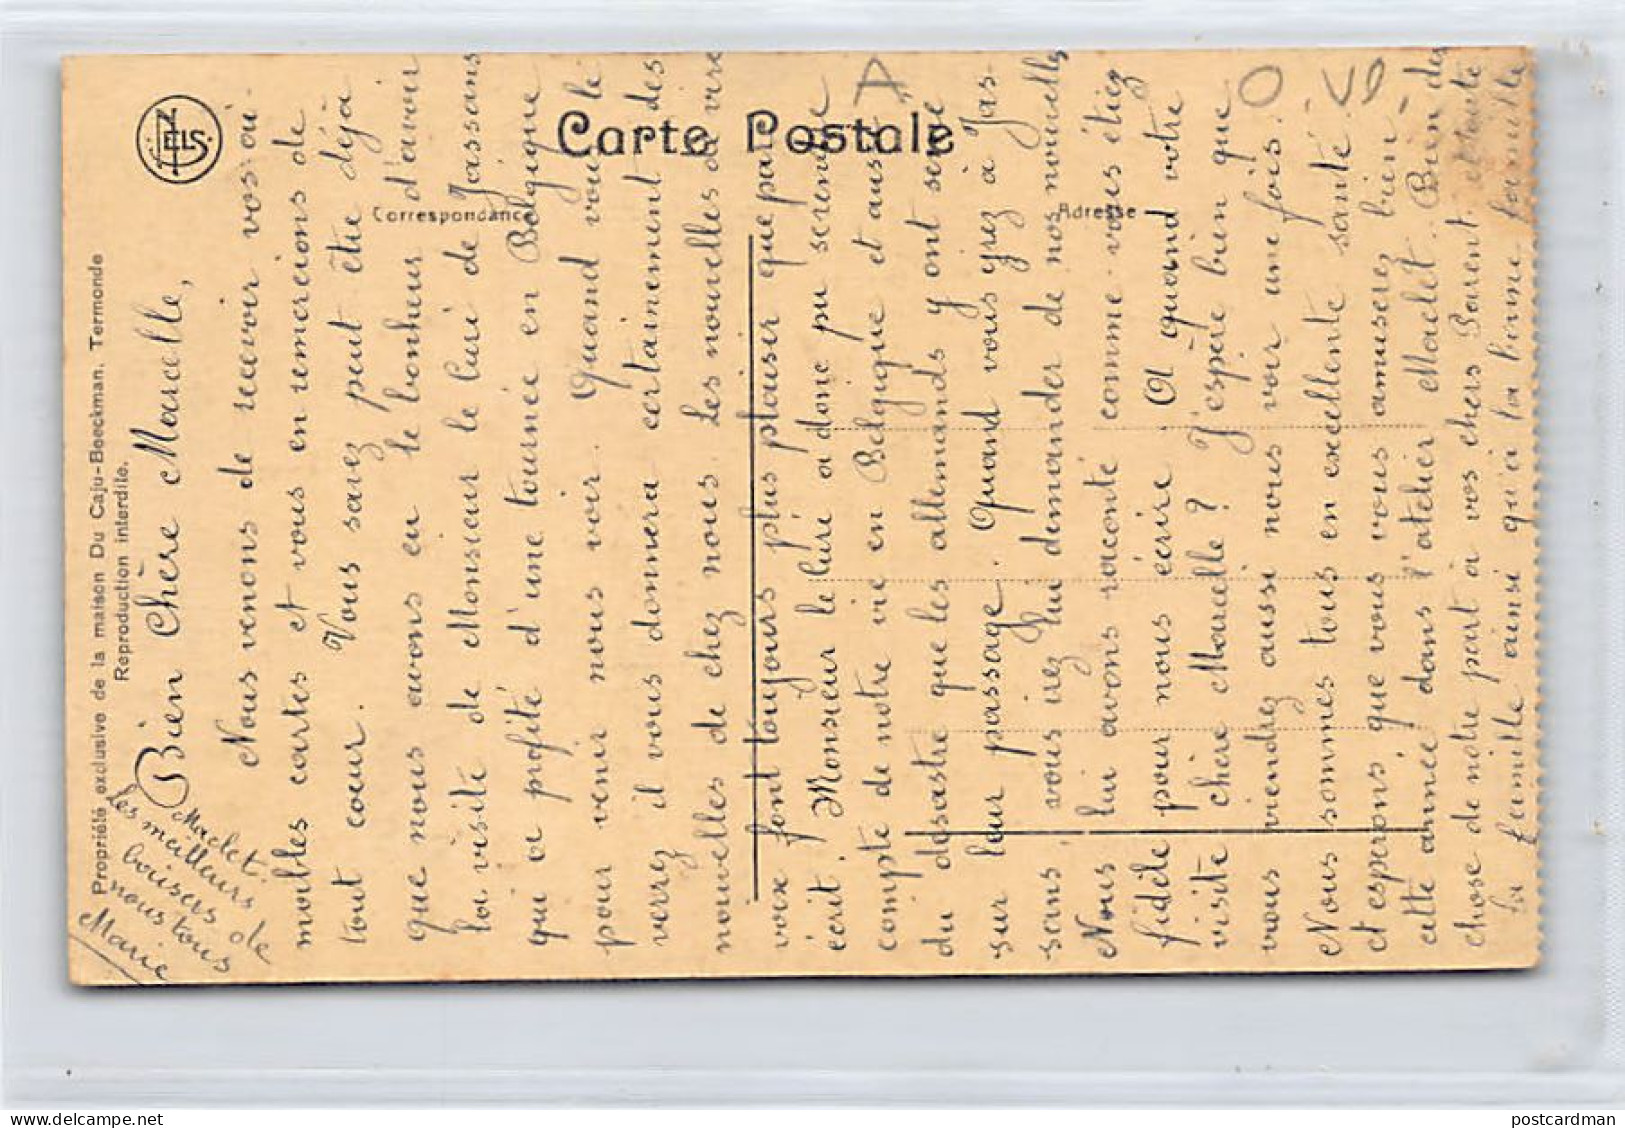 Carte Postale
Correspondance
Adresse
NELS
Propriété exclusive de la maison Du Caju-Beeckman, Termonde
Reproduction interdite.
Bien Chère Marcelle,
Nous venons de recevoir vos ai-
mables cartes et vous en remercions de
tout cœur. Vous savez peut être déjà
que nous avons eu le bonheur d'avoir
la visite de Monsieur le Curé de Jassans
qui a profité d'une tournée en Belgique
pour venir nous voir. Quand vous le
verrez il vous donnera certainement des
nouvelles de chez nous. Les nouvelles de vive
voix font toujours plus plaisir que par
écrit. Monsieur le Curé a donc pu se rendre
compte de notre vie en Belgique et aussi
du désastre que les allemands y ont semé
sur leur passage. Quand vous irez à Jas-
sans, vous irez lui demander de nos nouvelles
Nous lui avons raconté comme vous étiez
fidèle pour nous écrire. A quand votre
visite chère Marcelle? J'espère bien que
vous viendrez aussi nous voir une fois.
Nous sommes tous en excellente santé
et espérons que vous vous amuserez bien
cette année dans l'atelier Maclet. Bien des
chose de notre part à vos chers Parent. et toute
la famille ainsi qu'à la bonne famille
Maclet.
les meilleurs
baisers de
nous tous
Marie
postcardman